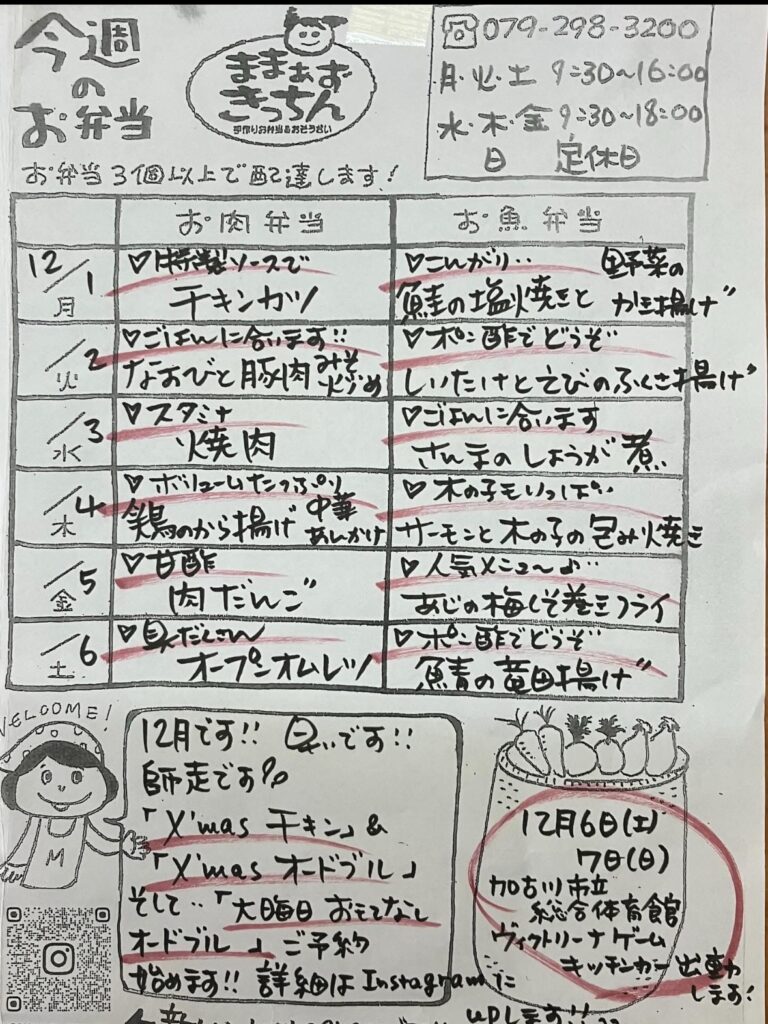 今週
の
お弁当
ままぁず
きっちん
手作りお弁当&おそうざい
☎079-298-3200
月・火・土 9:30~16:00
水・木・金 9:30~18:00
日 定休日
お弁当3個以上で配達します!
お肉弁当 お魚弁当
12/1 月
♡特製ソースで
チキンカツ
♡こんがり‥ 野菜の
鮭の塩焼きと かき揚げ
/2 火
♡ごはんに合います!!
なすびと豚肉 みそ
炒め
♡ポン酢でどうぞ
しいたけとえびのふくさ揚げ
/3 水
♡スタミナ
焼肉
♡ごはんに合います
さんまのしょうが煮
/4 木
♡ボリュームたっぷり
鶏のから揚げ 中華
あんかけ
♡木の子もいっぱい‥
サーモンと木の子の包み焼き
/5 金
♡甘酢
肉だんご
♡人気メニュ〜♪‥
あじの梅しそ巻きフライ
/6 土
♡具だくさん
オープンオムレツ
♡ポン酢でどうぞ
鯖の竜田揚げ
WELCOME!
M
12月です!! 早いです!!
師走です
「X'mas チキン」&
「X'mas オードブル」
そして‥「大晦日 おもてなし
オードブル」ご予約
始めます!! 詳細はInstagramに
upします!!
12月6日(土)
7日(日)
加古川市立
総合体育館
ヴィクトリーナゲーム
キッチンカー出動
します!